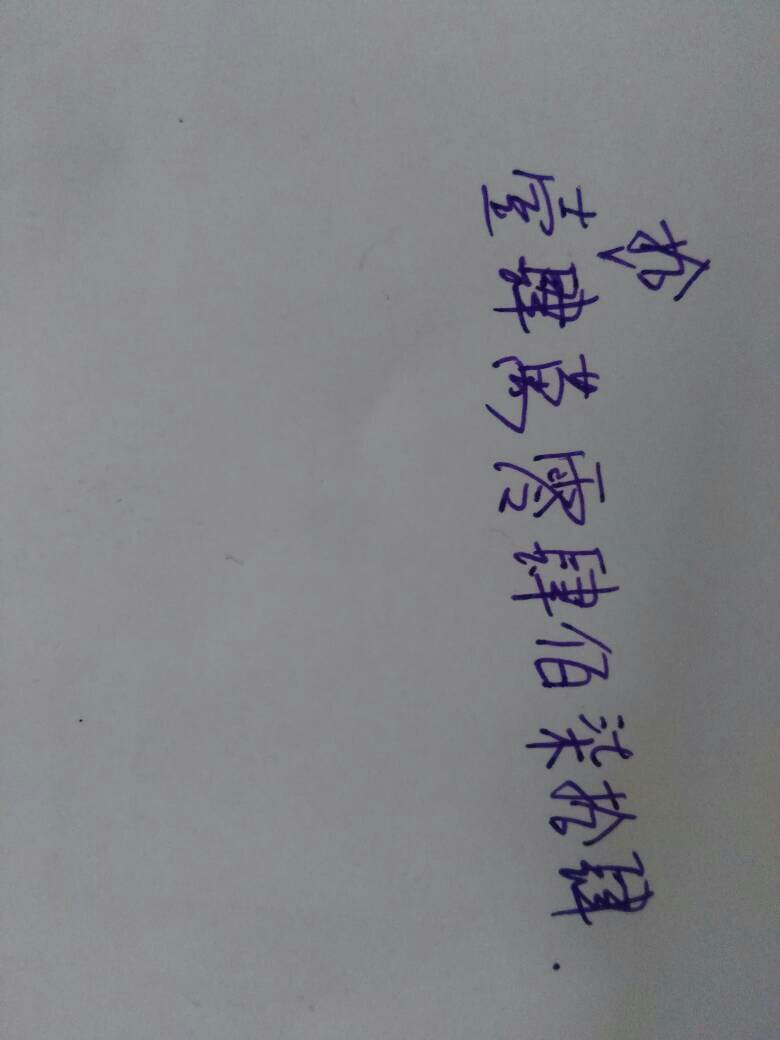 壹拾肆萬零肆佰柒拾肆.